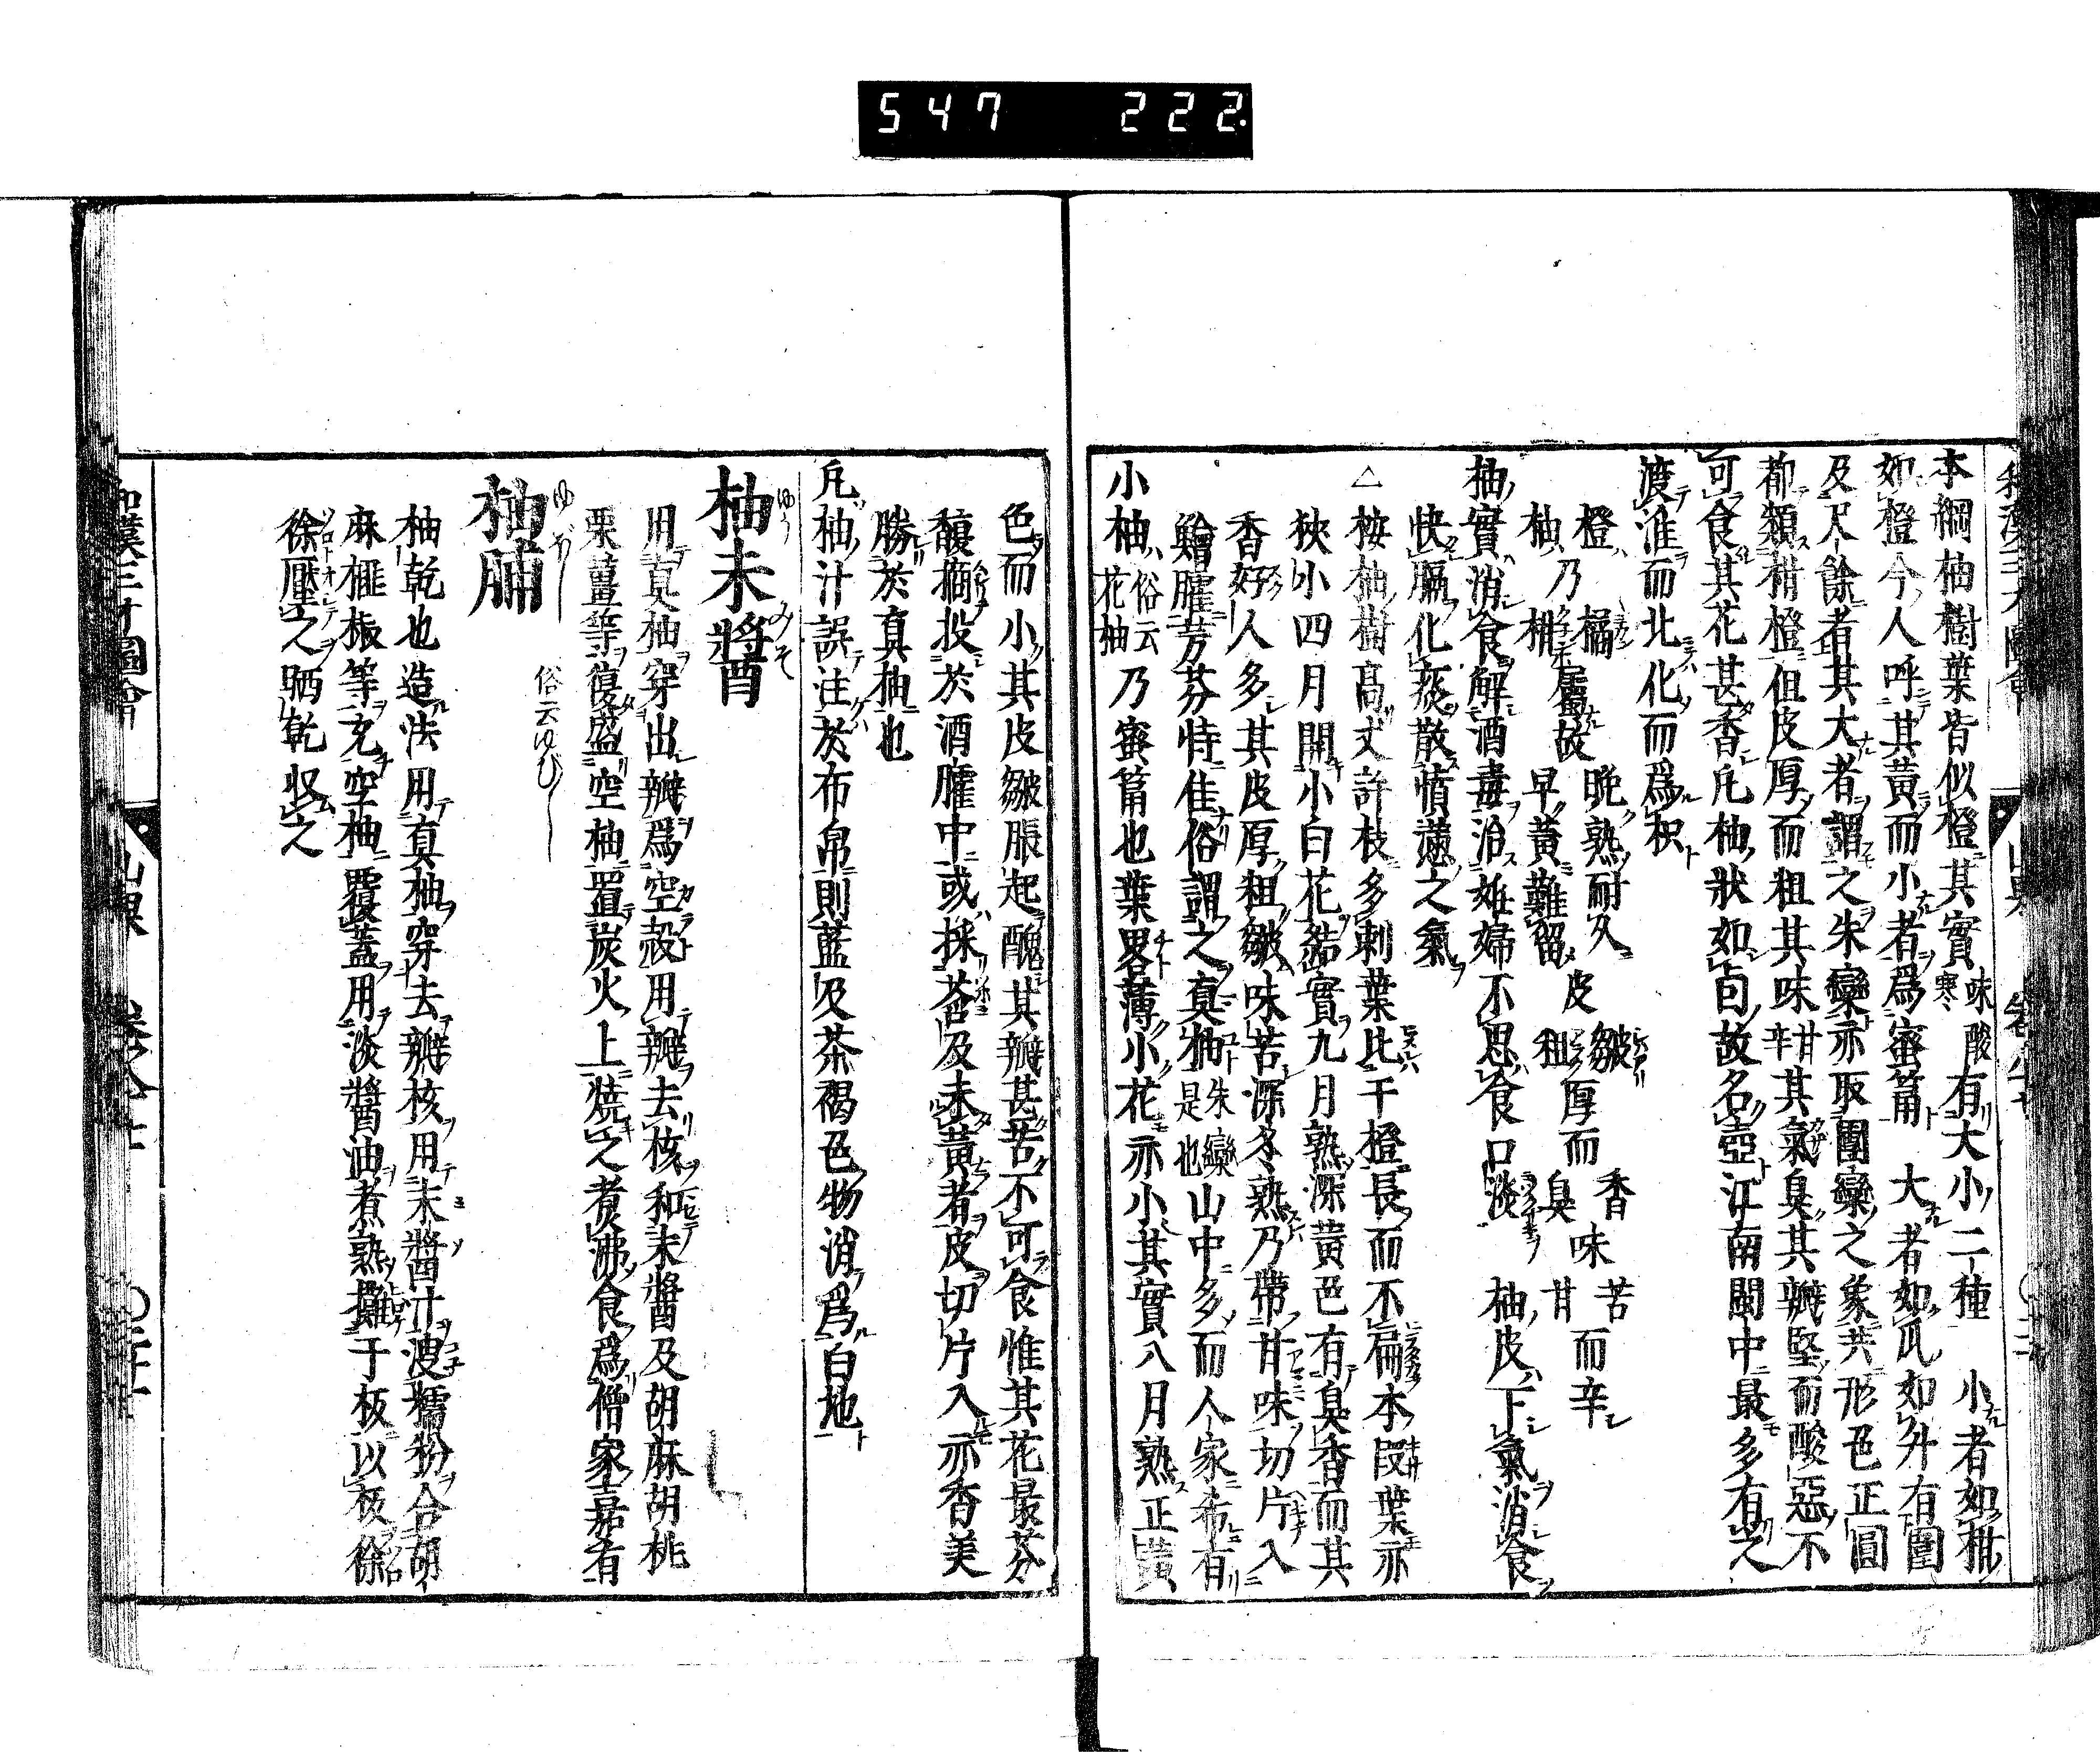 547 222
本綱柚樹葉皆似橙其實味酸寒有大小二種小者如柑
如橙今人呼其黃而小者爲蜜筩大者如瓜如升有圍
及尺餘者其大者謂之朱欒亦取團欒之象共形色正圓
都類柑橙但皮厚而粗其味甘辛其氣臭其瓣堅而酸惡不
可食其花甚香凡柚狀如卣故名壺江南閩中最多有之
渡淮而北化而爲枳
橙乃橘屬故晚熟耐久皮皺厚而香味苦而辛
柚乃柑屬故早黃難留皮粗厚而臭味甘而辛
柚實消食解酒毒治妊婦不思食口淡柚皮下氣消食
快膈化痰散憤懣之氣
△桉柚樹髙丈許枝多刺葉比于橙長而不扁本段葉亦
狹小四月開小白花結實九月熟深黃色有臭香而其
香好人多其皮厚粗皺味苦深冬熟乃帶甘味切片入
鱠臛芳芬特佳俗謂之真柚朱欒是也山中多而人家希有
小柚俗云花柚乃蜜筩也葉畧薄小花亦小其實八月熟正黃
色而小其皮皺脹起醜其瓣甚苦不可食惟其花最芬
馥摘投於酒臛中或採莟及未黃者皮切片入亦香美
勝於真柚也
凡柚汁誤注於布帛則藍及茶褐色物消爲白地
柚未醬ゆうみそ
用真柚穿出瓣爲空殼用瓣去核和未醬及胡麻胡桃
栗薑等復盛空柚置炭火上燒之煮沸食爲僧家嘉有
柚脯俗云ゆびし
柚乾也造法用真柚穿去瓣核用未醬汁溲糯粉合胡
麻榧椒等充空柚覆蓋用淡醬油煮熟攤于板以板徐
徐壓之晒乾収之
和漢三才圖會 山果 卷八十七